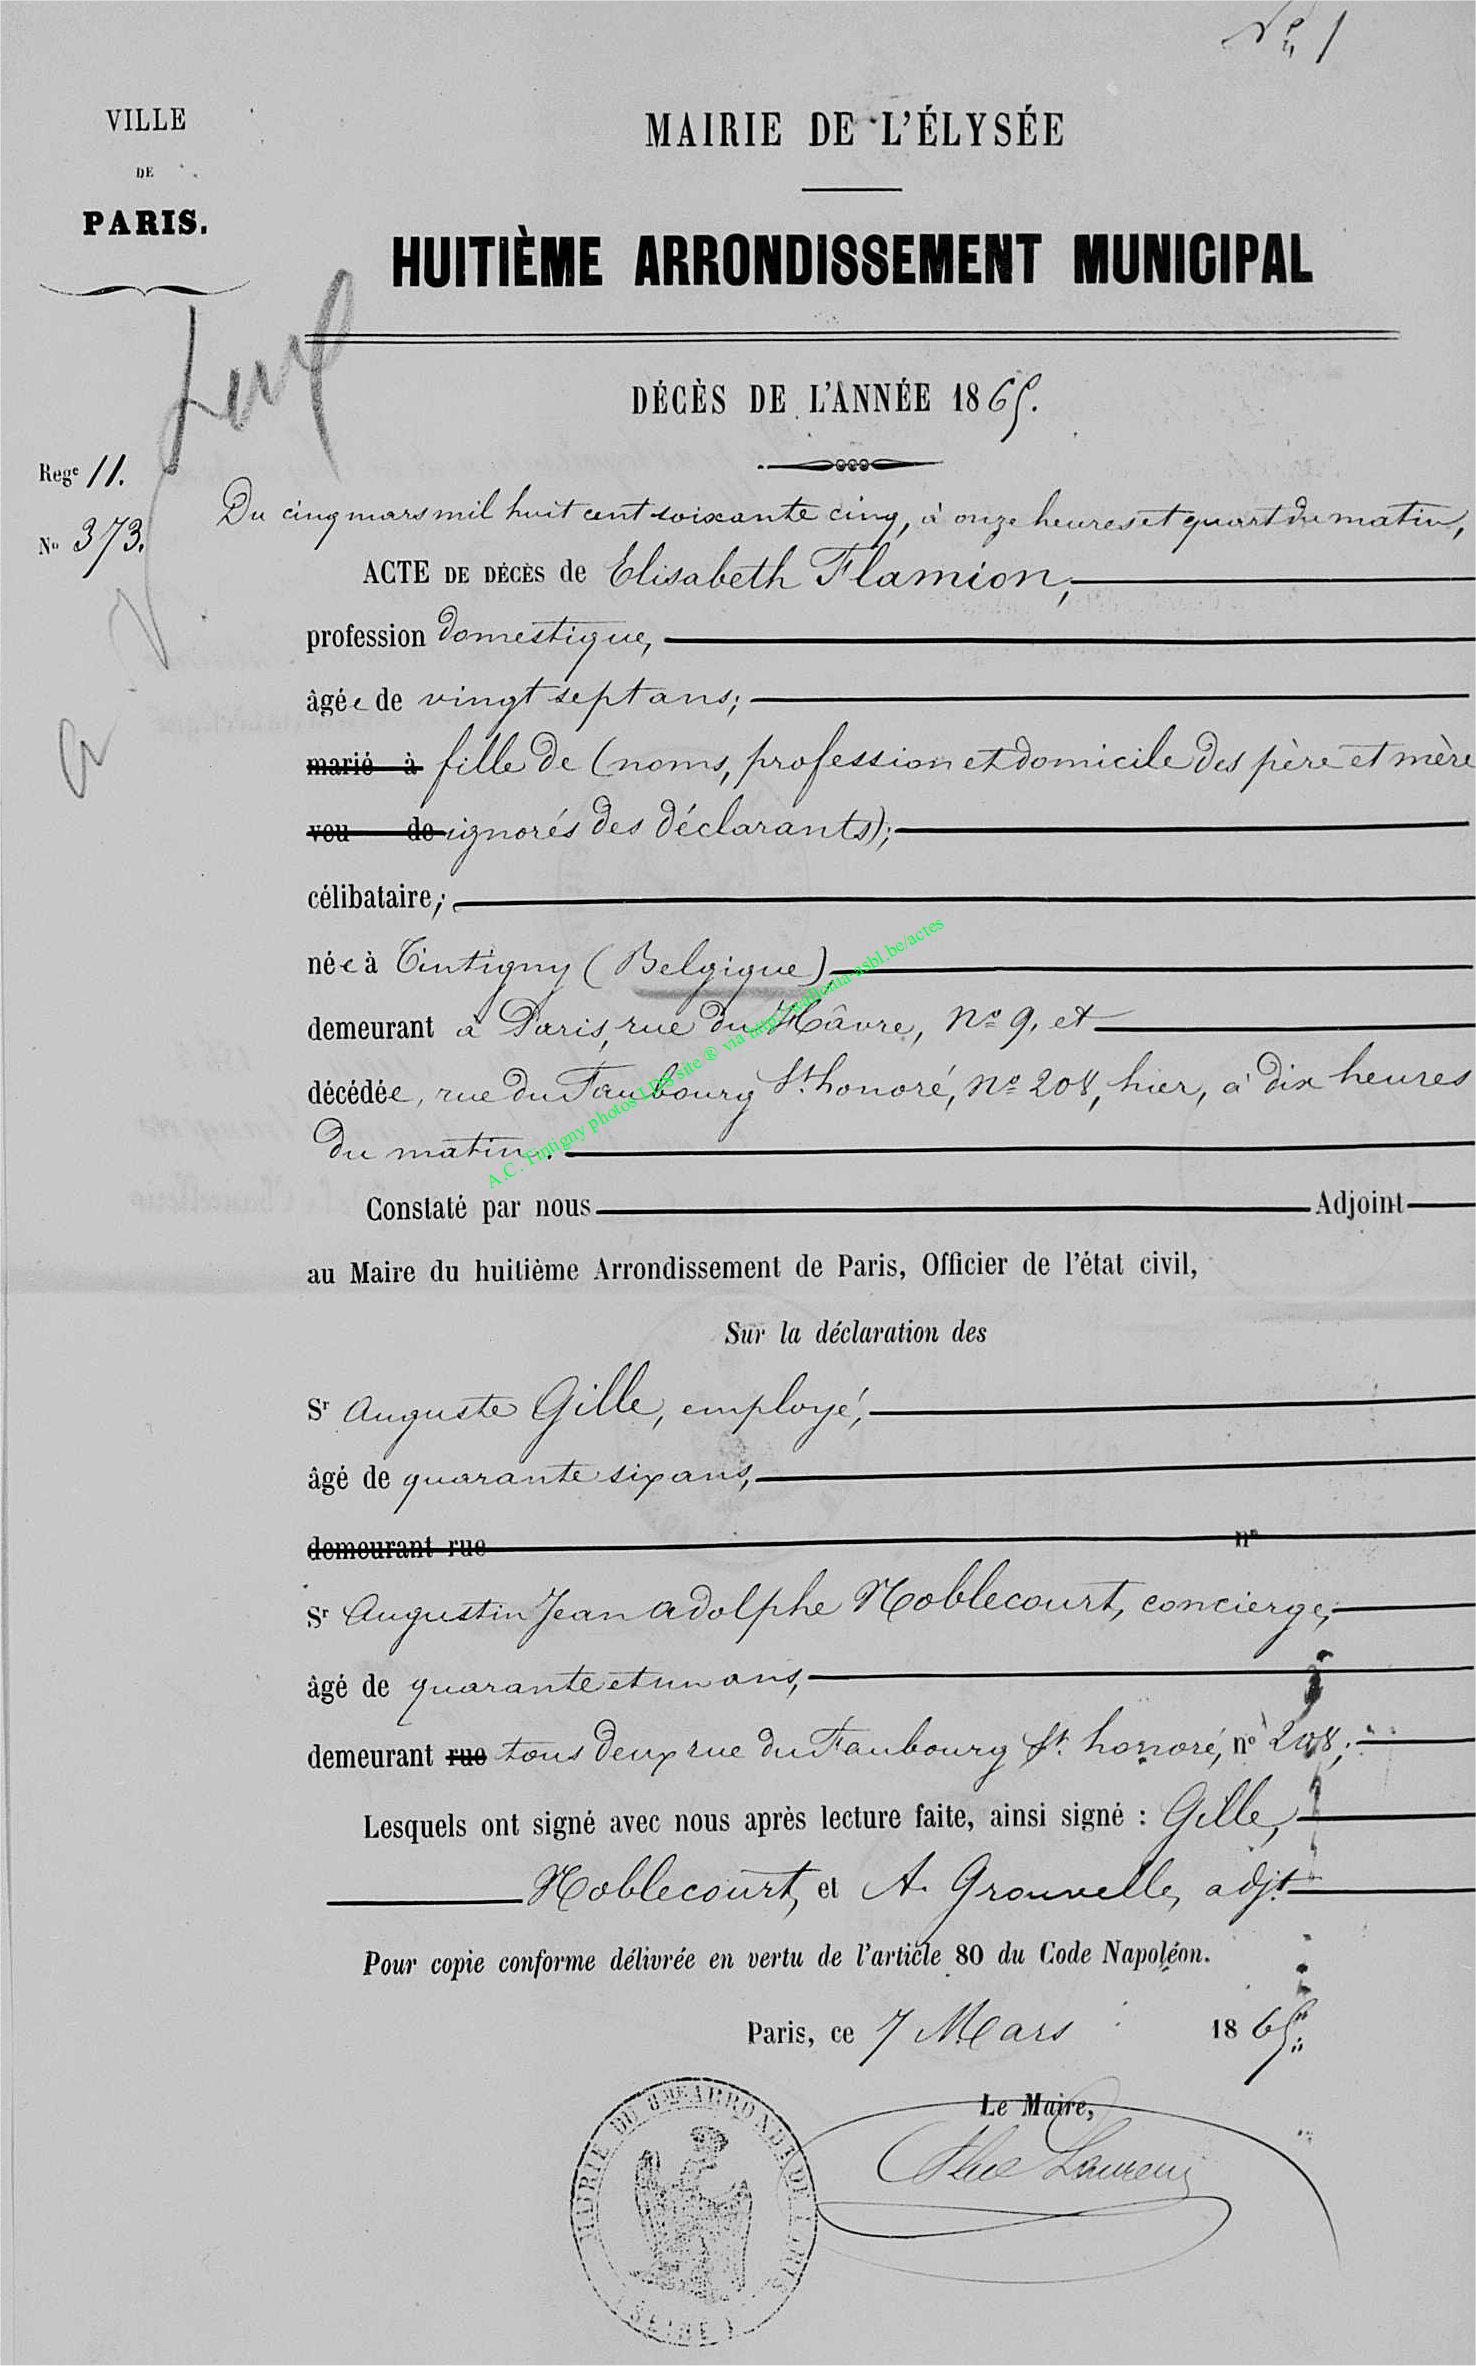 Nº 1
VILLE
DE
PARIS.
MAIRIE DE L'ÉLYSÉE
HUITIÈME ARRONDISSEMENT MUNICIPAL
DÉCÈS DE L'ANNÉE 1865.
Rege 11.
No 373.
Du cinq mars mil huit cent soixante cinq, à onze heures et quart du matin,
ACTE DE DÉCÈS de Elisabeth Flamion,
profession domestique,
âgée de vingt sept ans;
marié à fille de (noms, profession et domicile des père et mère
veu de ignorés des déclarants);
célibataire;
née à Tintigny (Belgique)
demeurant à Paris, rue du Hâvre, Nº 9, et
décédée, rue du Faubourg St. honoré, Nº 208, hier, à dix heures
du matin.
A.C. Tintigny photos LDS site ® via http://wallonia-asbl.be/actes
Constaté par nous Adjoint
au Maire du huitième Arrondissement de Paris, Officier de l'état civil,
Sur la déclaration des
Sr Auguste Gille, employé,
âgé de quarante six ans,
demeurant rue no
Sr Augustin Jean Adolphe Noblecourt, concierge,
âgé de quarante et un ans,
demeurant rue tous deux rue du Faubourg St. honoré, nº 208;
Lesquels ont signé avec nous après lecture faite, ainsi signé : Gille,
Noblecourt, et A. Grouvelle, adjt
Pour copie conforme délivrée en vertu de l'article 80 du Code Napoléon.
Paris, ce 7 Mars 1865.
Le Maire,
MAIRIE DU 8me ARRONDT DE PARIS
(SEINE)